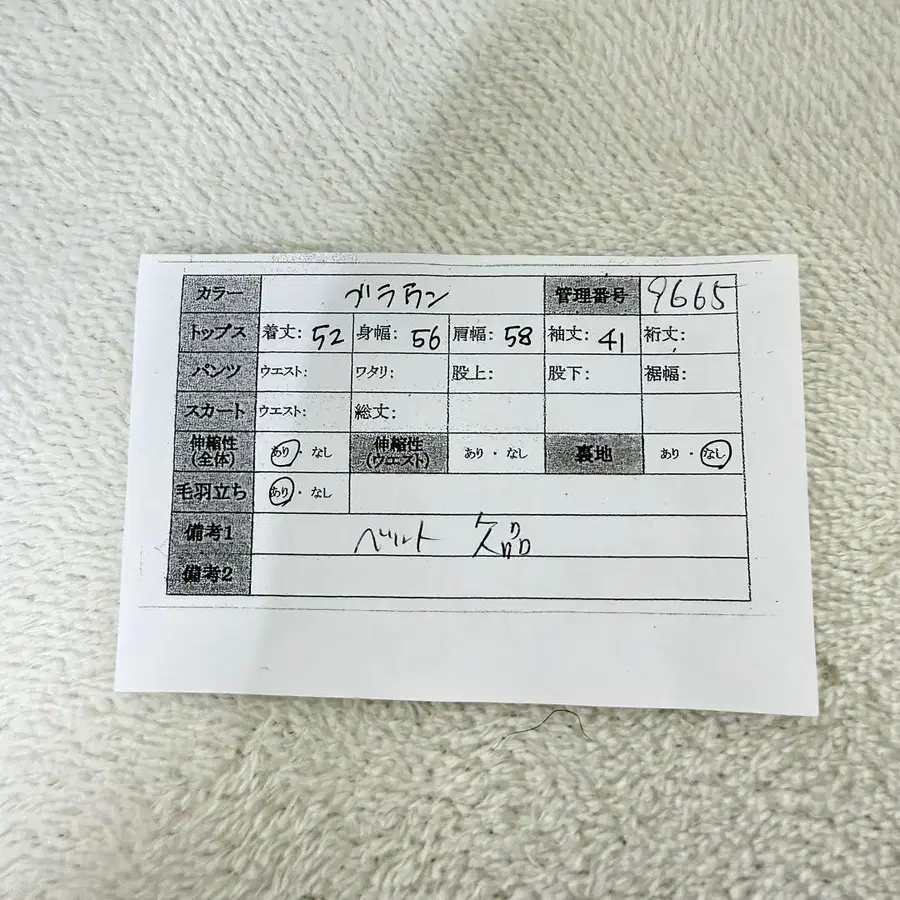 カラー ブラウン 管理番号 9665
トップス 着丈: 52 身幅: 56 肩幅: 58 袖丈: 41 裄丈:
パンツ ウエスト: ワタリ: 股上: 股下: 裾幅:
スカート ウエスト: 総丈:
伸縮性(全体) あり・なし 伸縮性(ウエスト) あり・なし 裏地 あり・なし
毛羽立ち あり・なし
備考1 ベルト 欠品
備考2